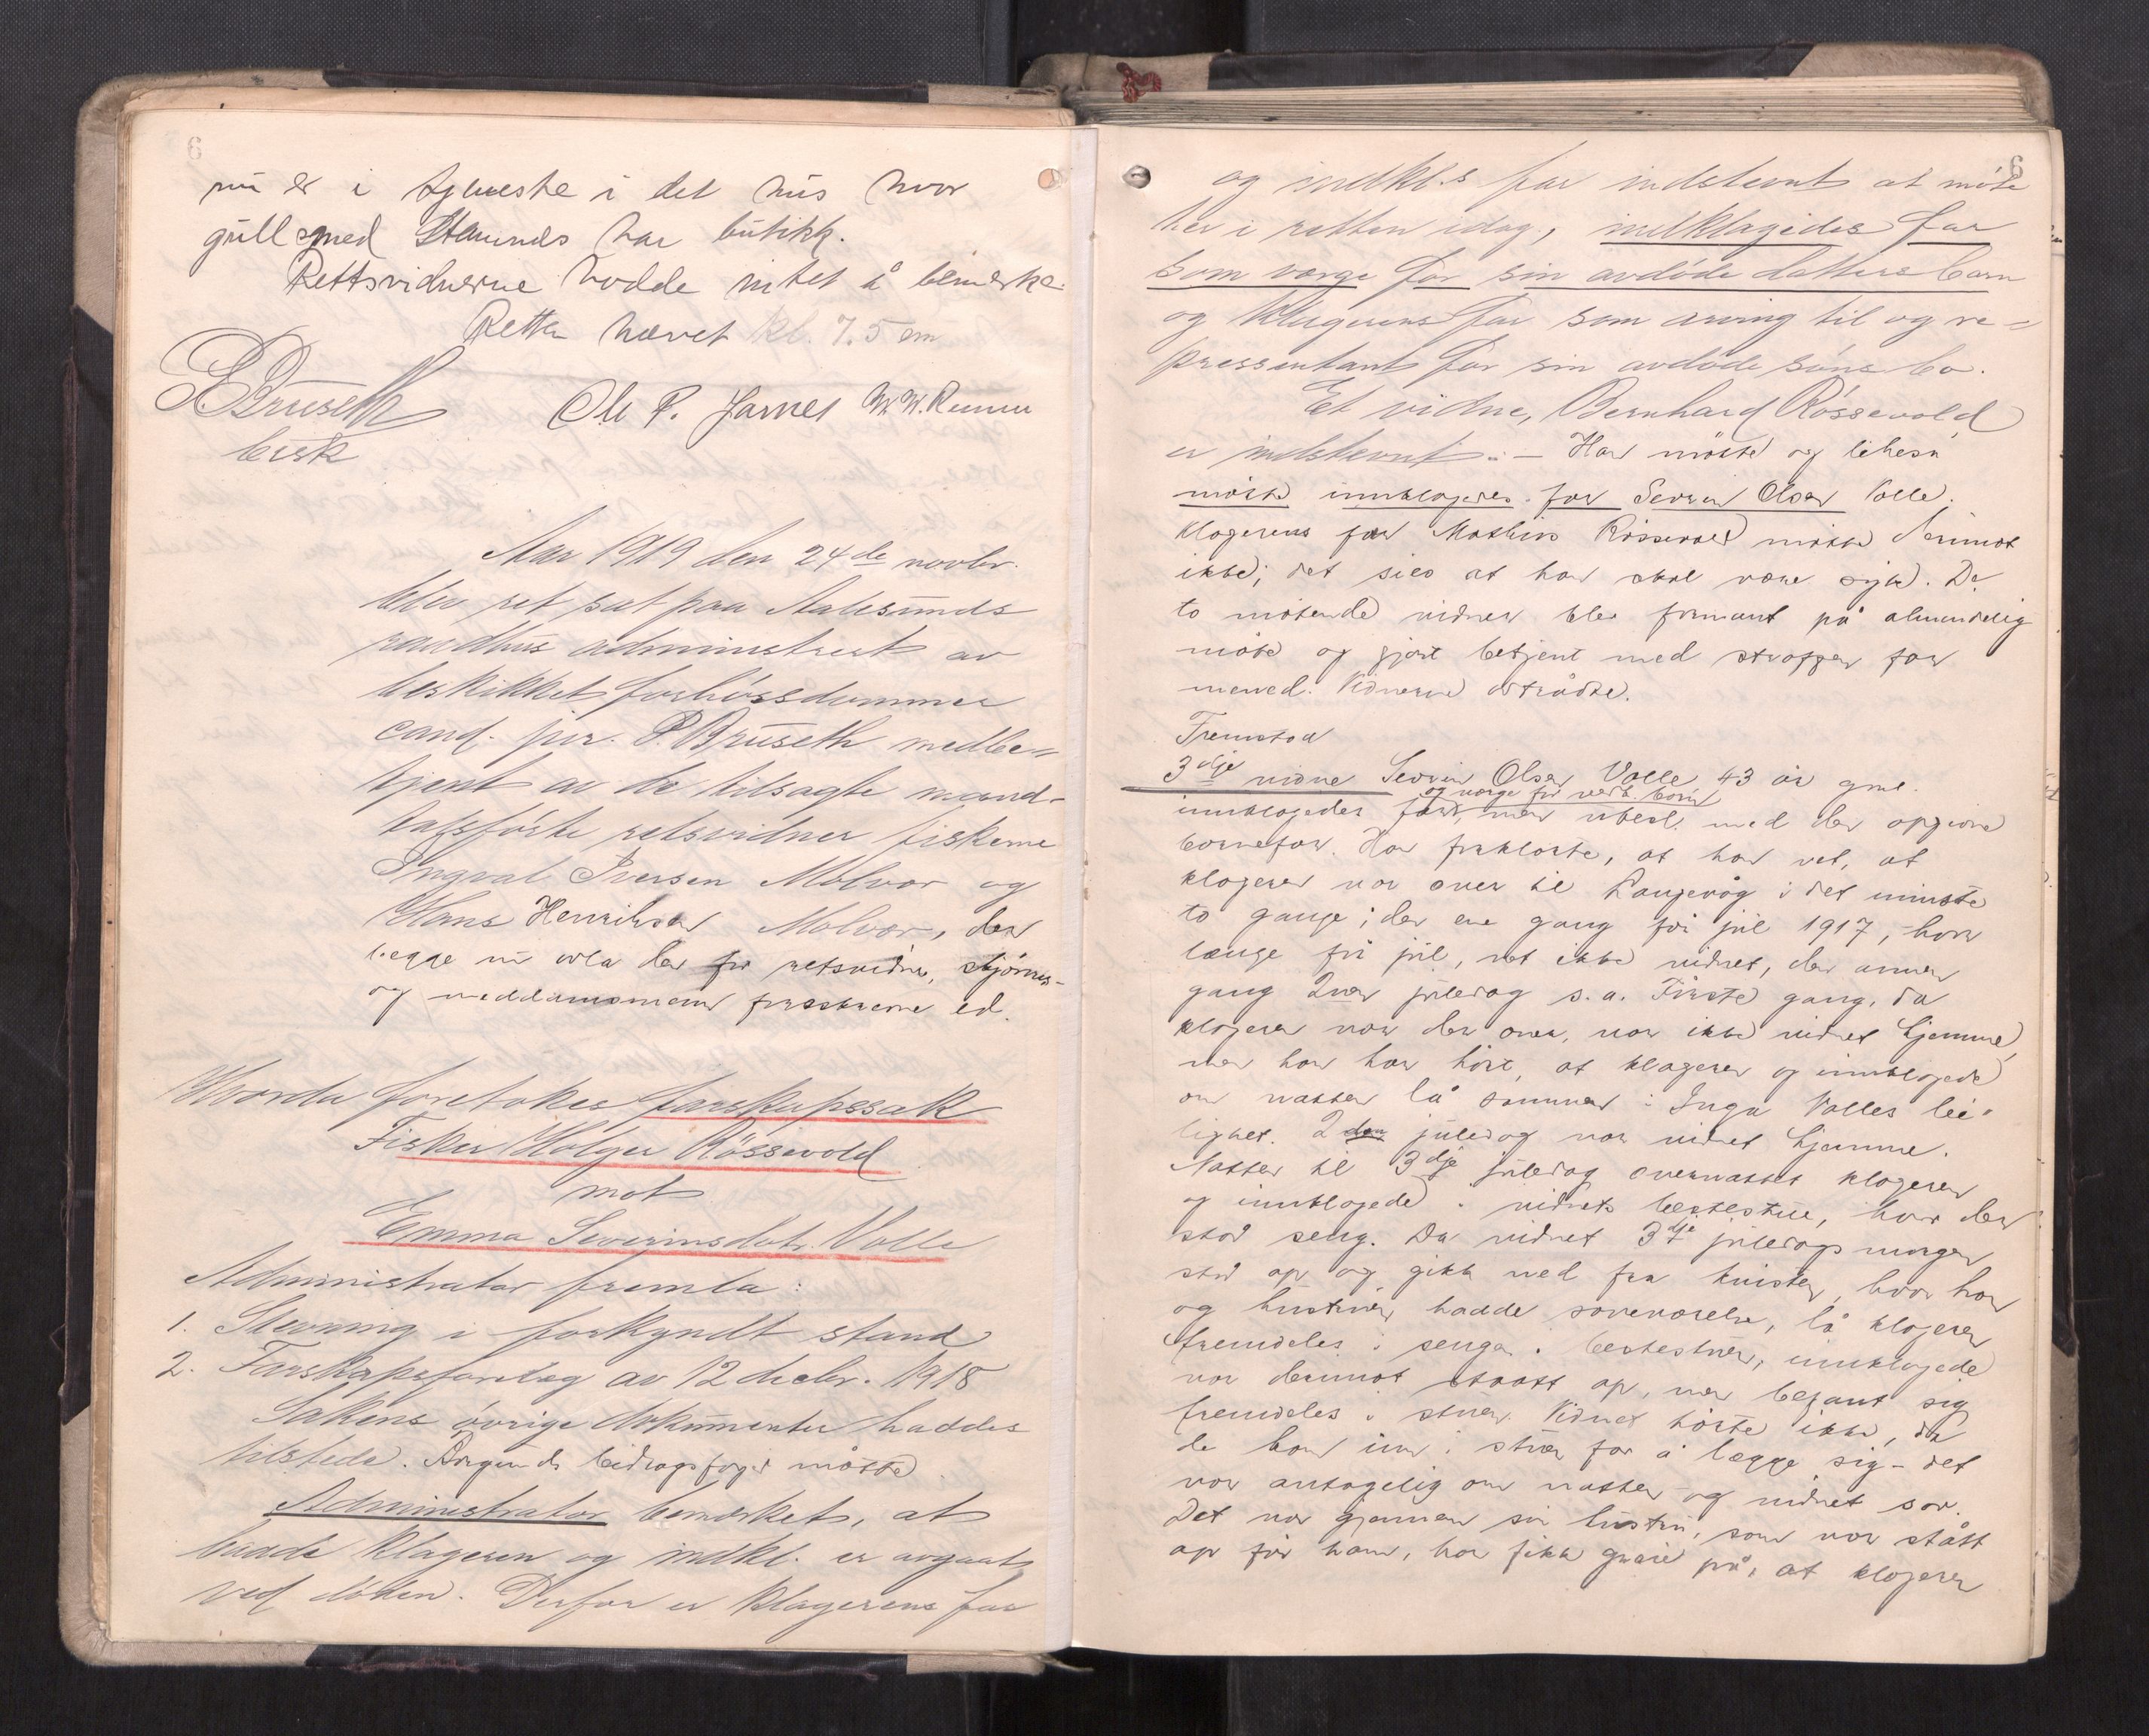 6
nu er i tjeneste i det hus hvor
gullsmed Staurnes har butikk.
Rettsvidnerne hadde intet å bemerke.
Retten hævet kl. 7.5 em
P. Bruseth
besk
Ole P. Jarnes M. M. Remøu
Aar 1919 den 24de novbr.
blev ret sat paa Aalesunds
raadhus administrert av
beskikket forhørsdommer
cand. jur. P. Bruseth medbe-
tjent av de tilsagte mand-
talsførte retsvidner fiskerne
Ingval Iversen Molvær og
Hans Henriksen Molvær, der
begge nu avla den for retsvidne, skjønns-
og meddomsmenn foreskrevne ed.
Hvorda foretokes farskapssak
Fisker Holger Røssevold
mot
Emma Severinsdotr. Valle
Administrator fremla:
1. Stevning i forkyndt stand
2. Farskapsforelæg av 12 decbr. 1918
Sakens øvrige dokumenter haddes
tilstede. Borgunds bidragsfoged møtte
Administrator bemerket, at
baade klageren og indkl. er avgaat
ved døden. Derfor er klagerens far
6
og indkl.s far indstevnt at møte
her i retten idag, indklagedes far
som værge for sin avdøde datters barn
og klagerens far som arving til og re-
pressentant for sin avdøde søns bo.
Et vidne, Bernhard Røssevold
er indstevnt. – Han møtte og likeså
møtte innklagedes far Severin Olsen Valle.
Klagerens far Mathias Røssevold møtte derimot
ikke; det sies at han skal være syk. De
to møtende vidner blev formant på almindelig
måte og gjort bekjent med straffen for
mened. Vidnerne avtrådte.
Fremstod
3dje vidne Severin Olsen Valle 43 år gml.
og værge for nevte barn
innklagedes far, men ubesl. med den opgivne
barnefar. Han forklarte, at han vet, at
klageren var over til Langevåg i det minste
to gange; den ene gang før jul 1917, hvor
længe før jul, vet ikke vidnet, den annen
gang 2nen juledag s. a. Første gang, da
klageren var der over, var ikke vidnet hjemme,
men han har hørt, at klageren og innklagede
om natten lå sammen i Inga Valles lei-
lighet. 2den juledag var vidnet hjemme.
Natten til 3dje juledag overnattet klageren
og innklagede i vidnets bestestue, hvor der
stod seng. Da vidnet 3dje juledags morgen
stod op og gikk ned fra kvisten, hvor han
og hustruen hadde soveværelse, lå klageren
fremdeles i senga i bestestuen, innklagede
var derimot stått op, men befant sig
fremdeles i stuen. Vidnet hørte ikke, da
de kom inn i stuen for å lægge sig – det
var antagelig om natten og vidnet sov.
Det var gjennem sin hustru, som var stått
op før ham, han fikk greie på, at klageren